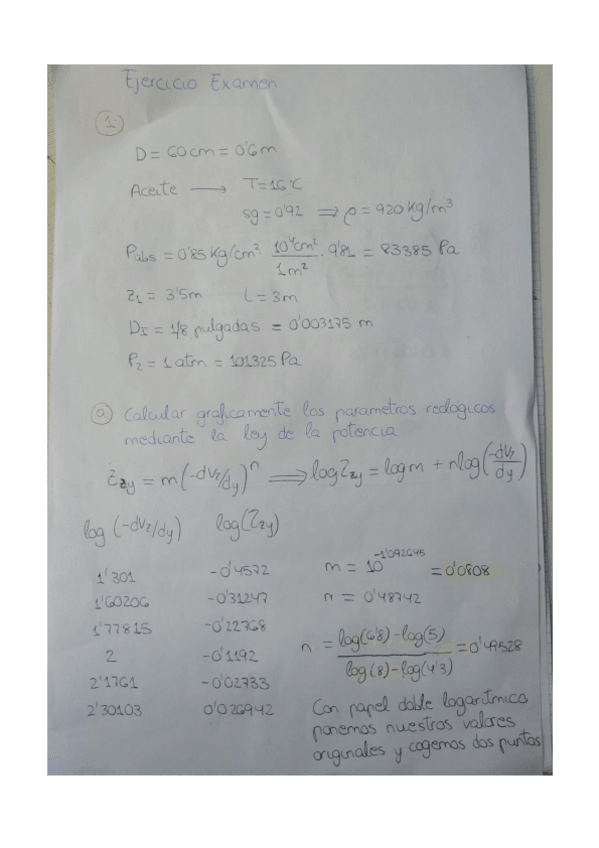 Ejercicio Examen
1.
D = 60 cm = 0'6 m
Aceite → T = 16 ℃
sg = 0'92 ⇒ ρ = 920 Kg/m³
Pabs = 0'85 Kg/cm² · 10⁴cm²/1m² · 9'81 = 83385 Pa
z₁ = 3'5m L = 3m
D_I = 1/8 pulgadas = 0'003175 m
P₂ = 1 atm = 101325 Pa
a) Calcular gráficamente los parametros reológicos
mediante la ley de la potencia
τzy = m(-dVz/dy)ⁿ ⟹ log τzy = log m + n log(-dVz/dy)
log (-dVz/dy) log(τzy)
1'301 -0'4572 m = 10^-1'092645 = 0'0808
1'60206 -0'31247 n = 0'48742
1'77815 -0'22768
2 -0'1192 n = log(6'8)-log(5) / log(8)-log(4'3) = 0'49528
2'1761 -0'02733
2'30103 0'026942 Con papel doble logaritmico
ponemos nuestros valores
originales y cogemos dos puntos